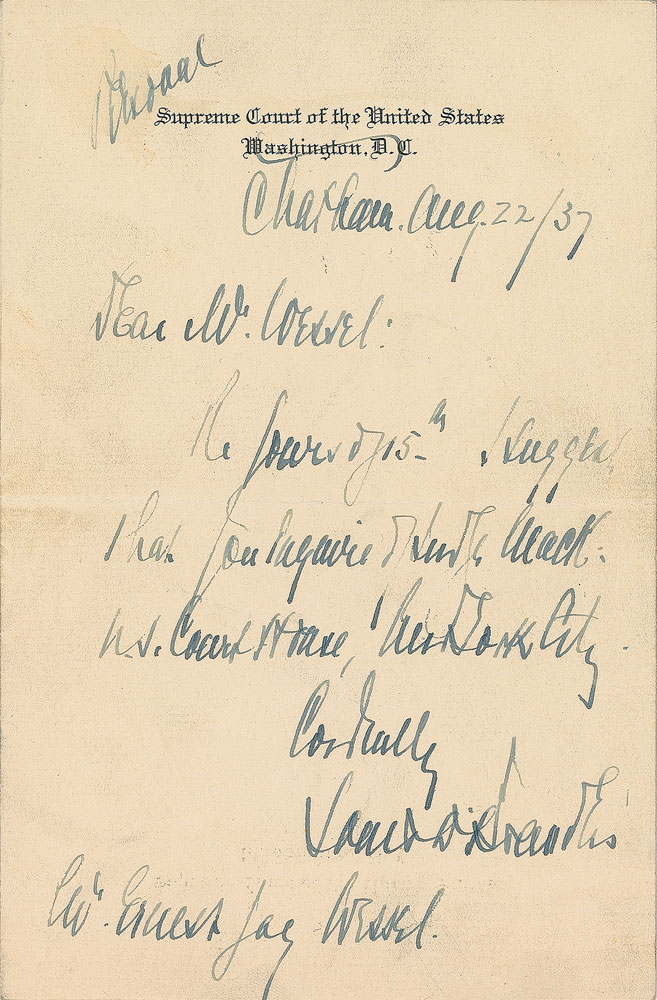 Personal
Supreme Court of the United States
Washington, D.C.
Chatham. Aug. 22/37
Dear Mr. Wessel:
Re yours of 15th I suggest
that you inquire of Judge Mack.
U.S. Court House, New York City.
Cordially
Louis D. Brandeis
Mr. Ernest Jay Wessel.